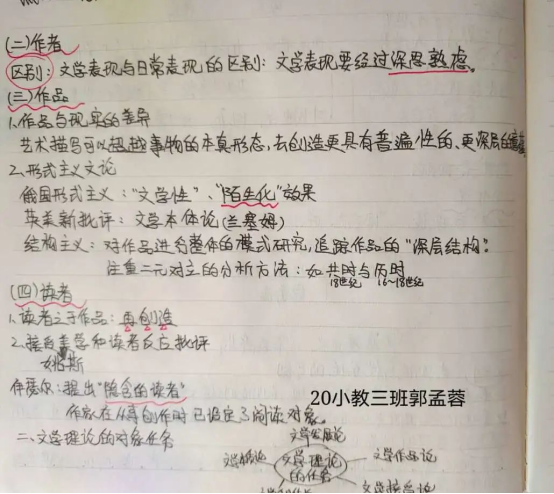 (二)作者
区别：文学表现与日常表现的区别：文学表现要经过深思熟虑。
(三)作品
1.作品与现实的差异
艺术描写可以超越事物的本真形态,去创造更具有普遍性的、更深层的
2.形式主义文论
俄国形式主义："文学性"、"陌生化"效果
英美新批评：文学本体论(兰塞姆)
结构主义：对作品进行整体的模式研究,追踪作品的"深层结构".
注重二元对立的分析方法：如共时与历时
18世纪 16~18世纪
(四)读者
1.读者之于作品：再创造
2.接受美学和读者反应批评
姚斯
伊瑟尔：提出"隐含的读者"
作家在从事创作时已设定了阅读对象。
20小教三班郭孟蓉
二、文学理论的对象任务
文学发展论
文学理论的任务
文学作品论